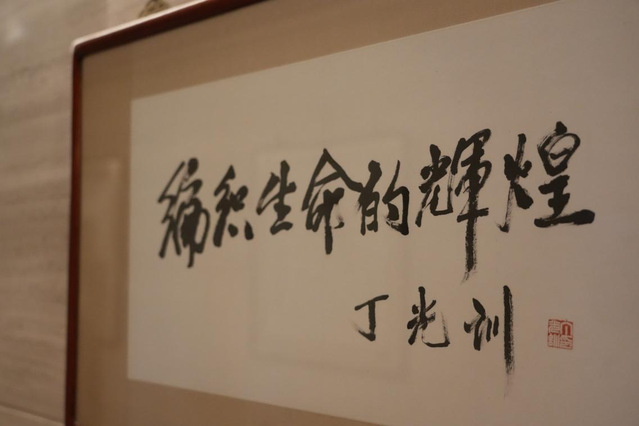 编织生命的輝煌
丁光训